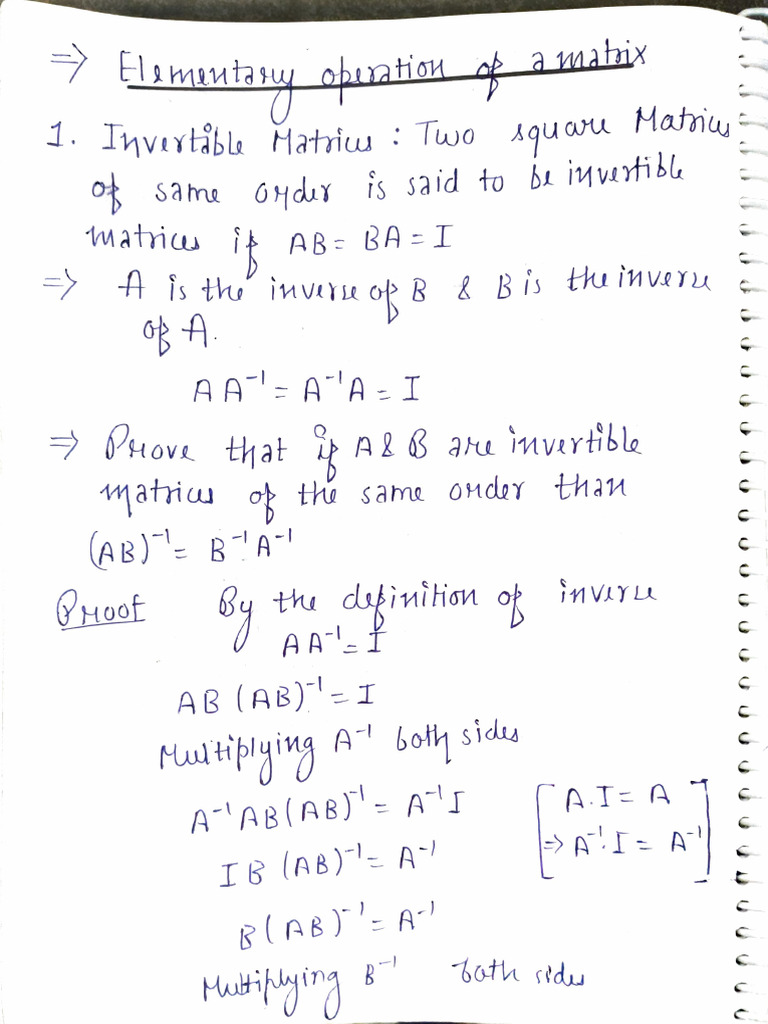 ⇒ Elementary operation of a matrix
1. Invertible Matrices : Two square Matrices
of same order is said to be invertible
matrices if AB = BA = I
⇒ A is the inverse of B & B is the inverse
of A.
AA⁻¹ = A⁻¹A = I
⇒ Prove that if A & B are invertible
matrices of the same order than
(AB)⁻¹ = B⁻¹A⁻¹
Proof By the definition of inverse
AA⁻¹ = I
AB (AB)⁻¹ = I
Multiplying A⁻¹ both sides
A⁻¹AB(AB)⁻¹ = A⁻¹I [A.I = A
IB (AB)⁻¹ = A⁻¹ ⇒ A⁻¹.I = A⁻¹]
B(AB)⁻¹ = A⁻¹
Multiplying B⁻¹ both sides